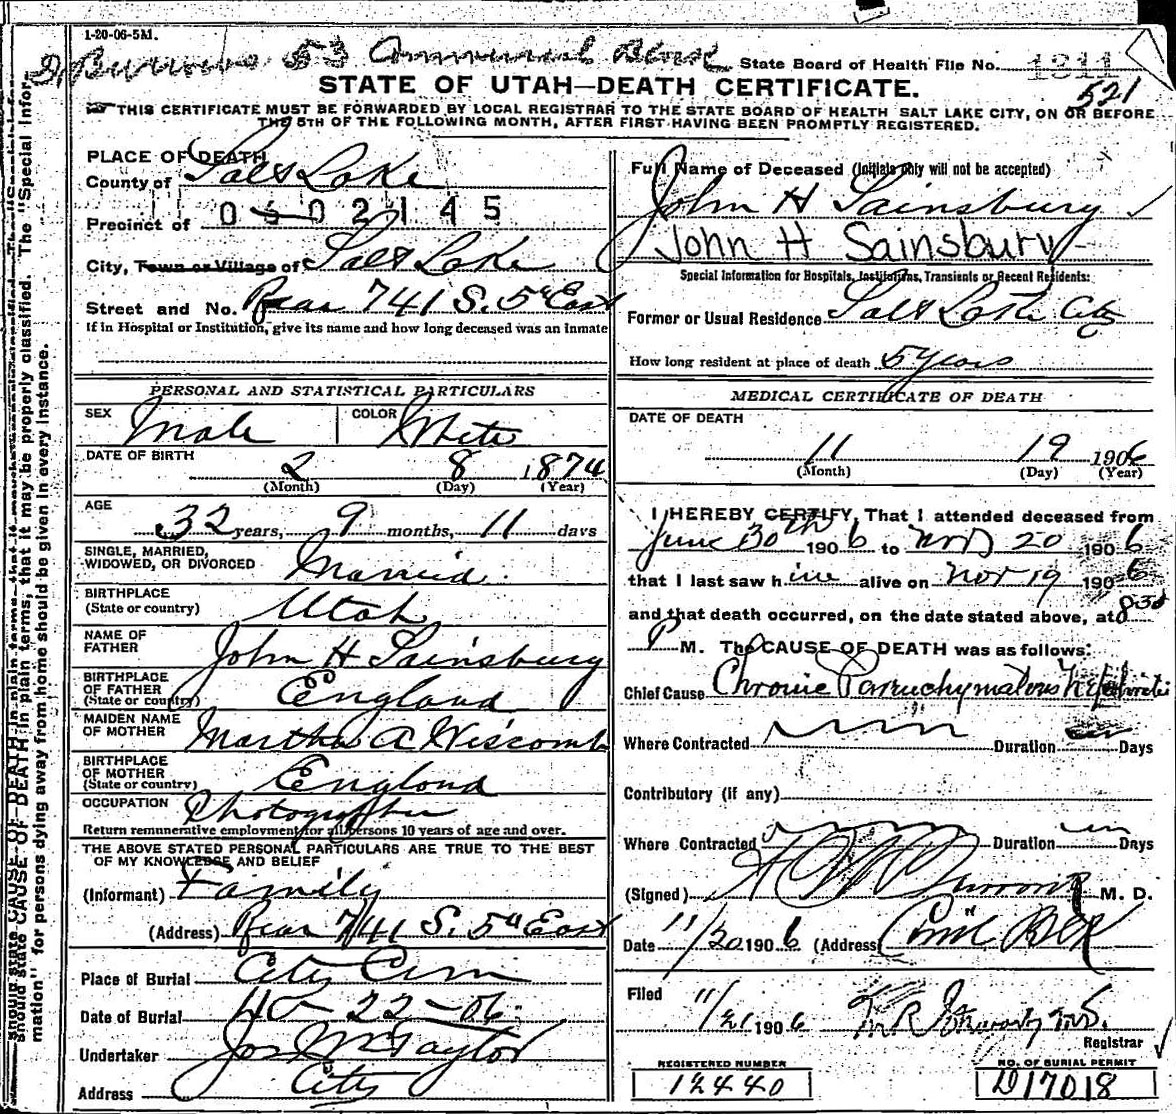 1-20-06-5M.
Dr Burrows 53 Commercial Block
State Board of Health File No. 1311
521
STATE OF UTAH—DEATH CERTIFICATE.
THIS CERTIFICATE MUST BE FORWARDED BY LOCAL REGISTRAR TO THE STATE BOARD OF HEALTH SALT LAKE CITY, ON OR BEFORE
THE 5TH OF THE FOLLOWING MONTH, AFTER FIRST HAVING BEEN PROMPTLY REGISTERED.
PLACE OF DEATH
County of Salt Lake
Precinct of 0602145
City, Town or Village of Salt Lake
Street and No. Rear 741 S. 5th East
If in Hospital or Institution, give its name and how long deceased was an inmate
PERSONAL AND STATISTICAL PARTICULARS
SEX Male COLOR White
DATE OF BIRTH 2 8 1874
(Month) (Day) (Year)
AGE 32 years, 9 months, 11 days
SINGLE, MARRIED,
WIDOWED, OR DIVORCED Married
BIRTHPLACE
(State or country) Utah
NAME OF
FATHER John H Sainsbury
BIRTHPLACE
OF FATHER
(State or country) England
MAIDEN NAME
OF MOTHER Martha A Wiscomb
BIRTHPLACE
OF MOTHER
(State or country) England
OCCUPATION Photographer
Return remunerative employment for all persons 10 years of age and over.
THE ABOVE STATED PERSONAL PARTICULARS ARE TRUE TO THE BEST
OF MY KNOWLEDGE AND BELIEF
(Informant) Family
(Address) Rear 741 S. 5th East
Place of Burial City Cem
Date of Burial 22-06
Undertaker Jos Wm Taylor
Address City
Full Name of Deceased (Initials only will not be accepted)
John H Sainsbury
John H Sainsbury
Special Information for Hospitals, Institutions, Transients or Recent Residents:
Former or Usual Residence Salt Lake City
How long resident at place of death 5 years
MEDICAL CERTIFICATE OF DEATH
DATE OF DEATH
11 19 1906
(Month) (Day) (Year)
I HEREBY CERTIFY, That I attended deceased from
June 30th 1906 to Nov 20 1906
that I last saw him alive on Nov 19 1906
and that death occurred, on the date stated above, at 830
P M. The CAUSE OF DEATH was as follows:
Chief Cause Chronic Parenchymatous Nephritis
Where Contracted Duration Days
Contributory (if any)
Where Contracted Duration Days
(Signed) Burrows M. D.
Date 11/20 1906 (Address) Coml Blk
Filed 11/21 1906
Registrar
REGISTERED NUMBER
12440
NO. OF BURIAL PERMIT
D17018
should state CAUSE OF DEATH in plain terms, that it may be properly classified. The "Special Infor-
mation" for persons dying away from home should be given in every instance.